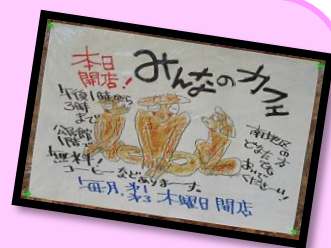 みんなのカフェ
本日
開店!
午後1時から
3時
まで
公民館
1階
無料!
コーヒーなどありまーす
南地区の
どなたでも
おいで
ください!!
毎月.第1
第3 木曜日 開店